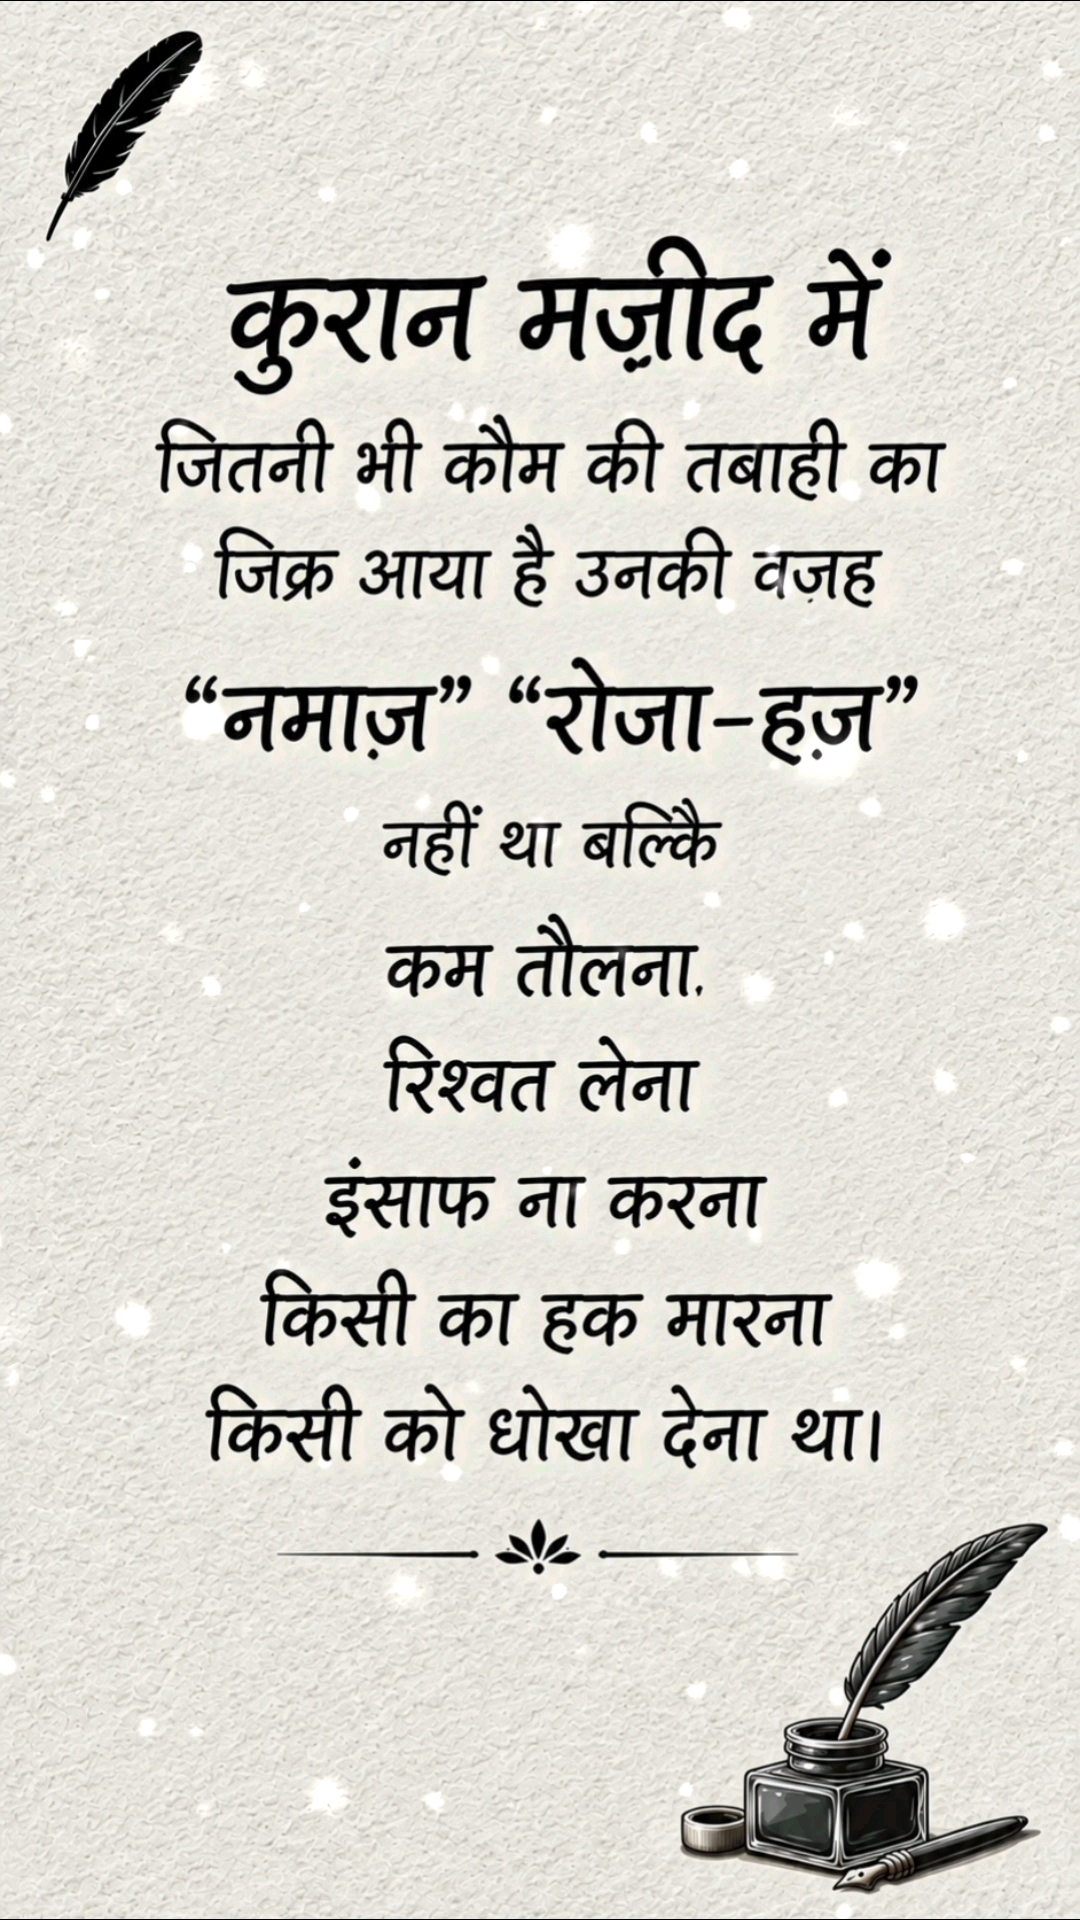 कुरान मज़ीद में
जितनी भी कौम की तबाही का
जिक्र आया है उनकी वज़ह
“नमाज़” “रोजा-हज़”
नहीं था बल्कि
कम तौलना,
रिश्वत लेना
इंसाफ ना करना
किसी का हक मारना
किसी को धोखा देना था।